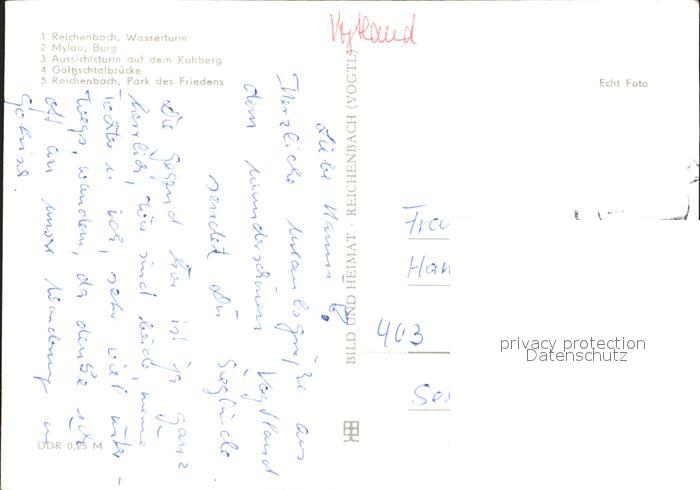 Vogtland
1 Reichenbach, Wasserturm
2 Mylau, Burg
3 Aussichtsturm auf dem Kuhberg
4 Göltzschtalbrücke
5 Reichenbach, Park des Friedens
Echt Foto
Liebe Hanni!
Herzliche Urlaubsgrüße aus
dem wunderschönen Vogtland
sendet Dir Sieglinde.
Die Gegend hier ist ja ganz
herrlich, wir sind beide, meine
Tochter u. ich, sehr viel unter-
wegs, wandern, da denke ich
oft an unsre Wanderung in
BILD UND HEIMAT · REICHENBACH (VOGTL)
Frau
403
privacy protection
Datenschutz
DDR 0,25 M